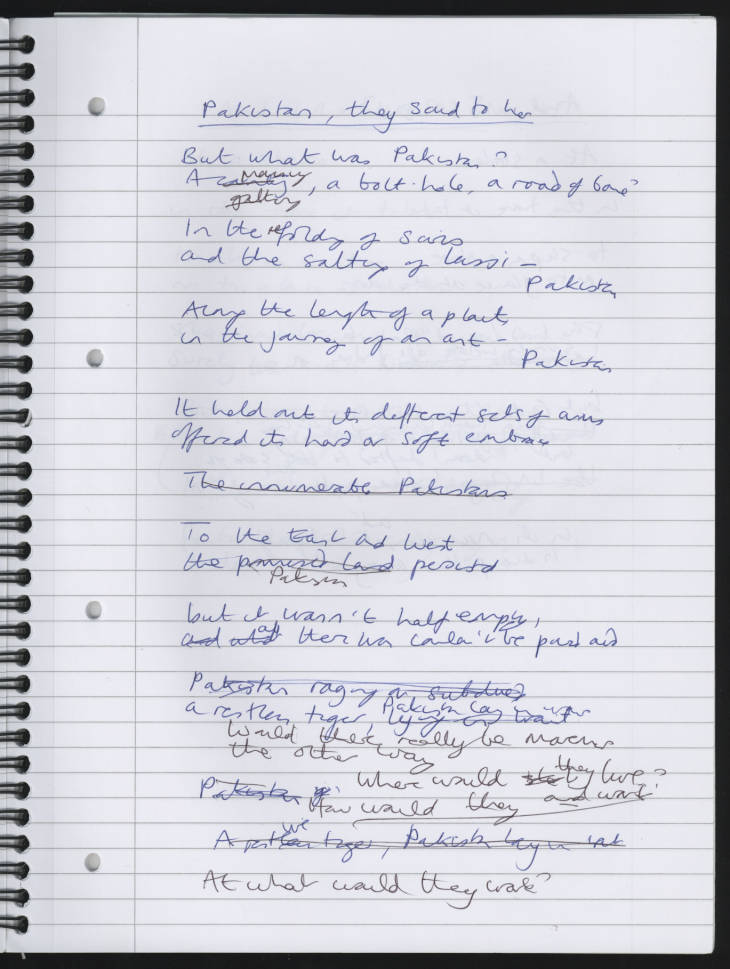 Pakistan, they said to her
But what was Pakistan?
A county , a bolt-hole, a road of bone?
In the refolding of saris
and the salting of lassi –
Pakistan
Along the length of a plait,
in the journey of an ant –
Pakistan
It held out its different sets of arms
offered its hard or soft embrace
The innumerable Pakistans
To the East and West
the promised land persisted
Pakistan
but it wasn't half empty,
and and there was couldn't be pushed aside
Pakistan raging or subdued
a restless tiger, Pakistan lay in wait
lying in wait
Would there really be
the other way
Pakistan
Where would they live?
How would they and work?
A restive tiger, Pakistan lay in wait
At what would they work?